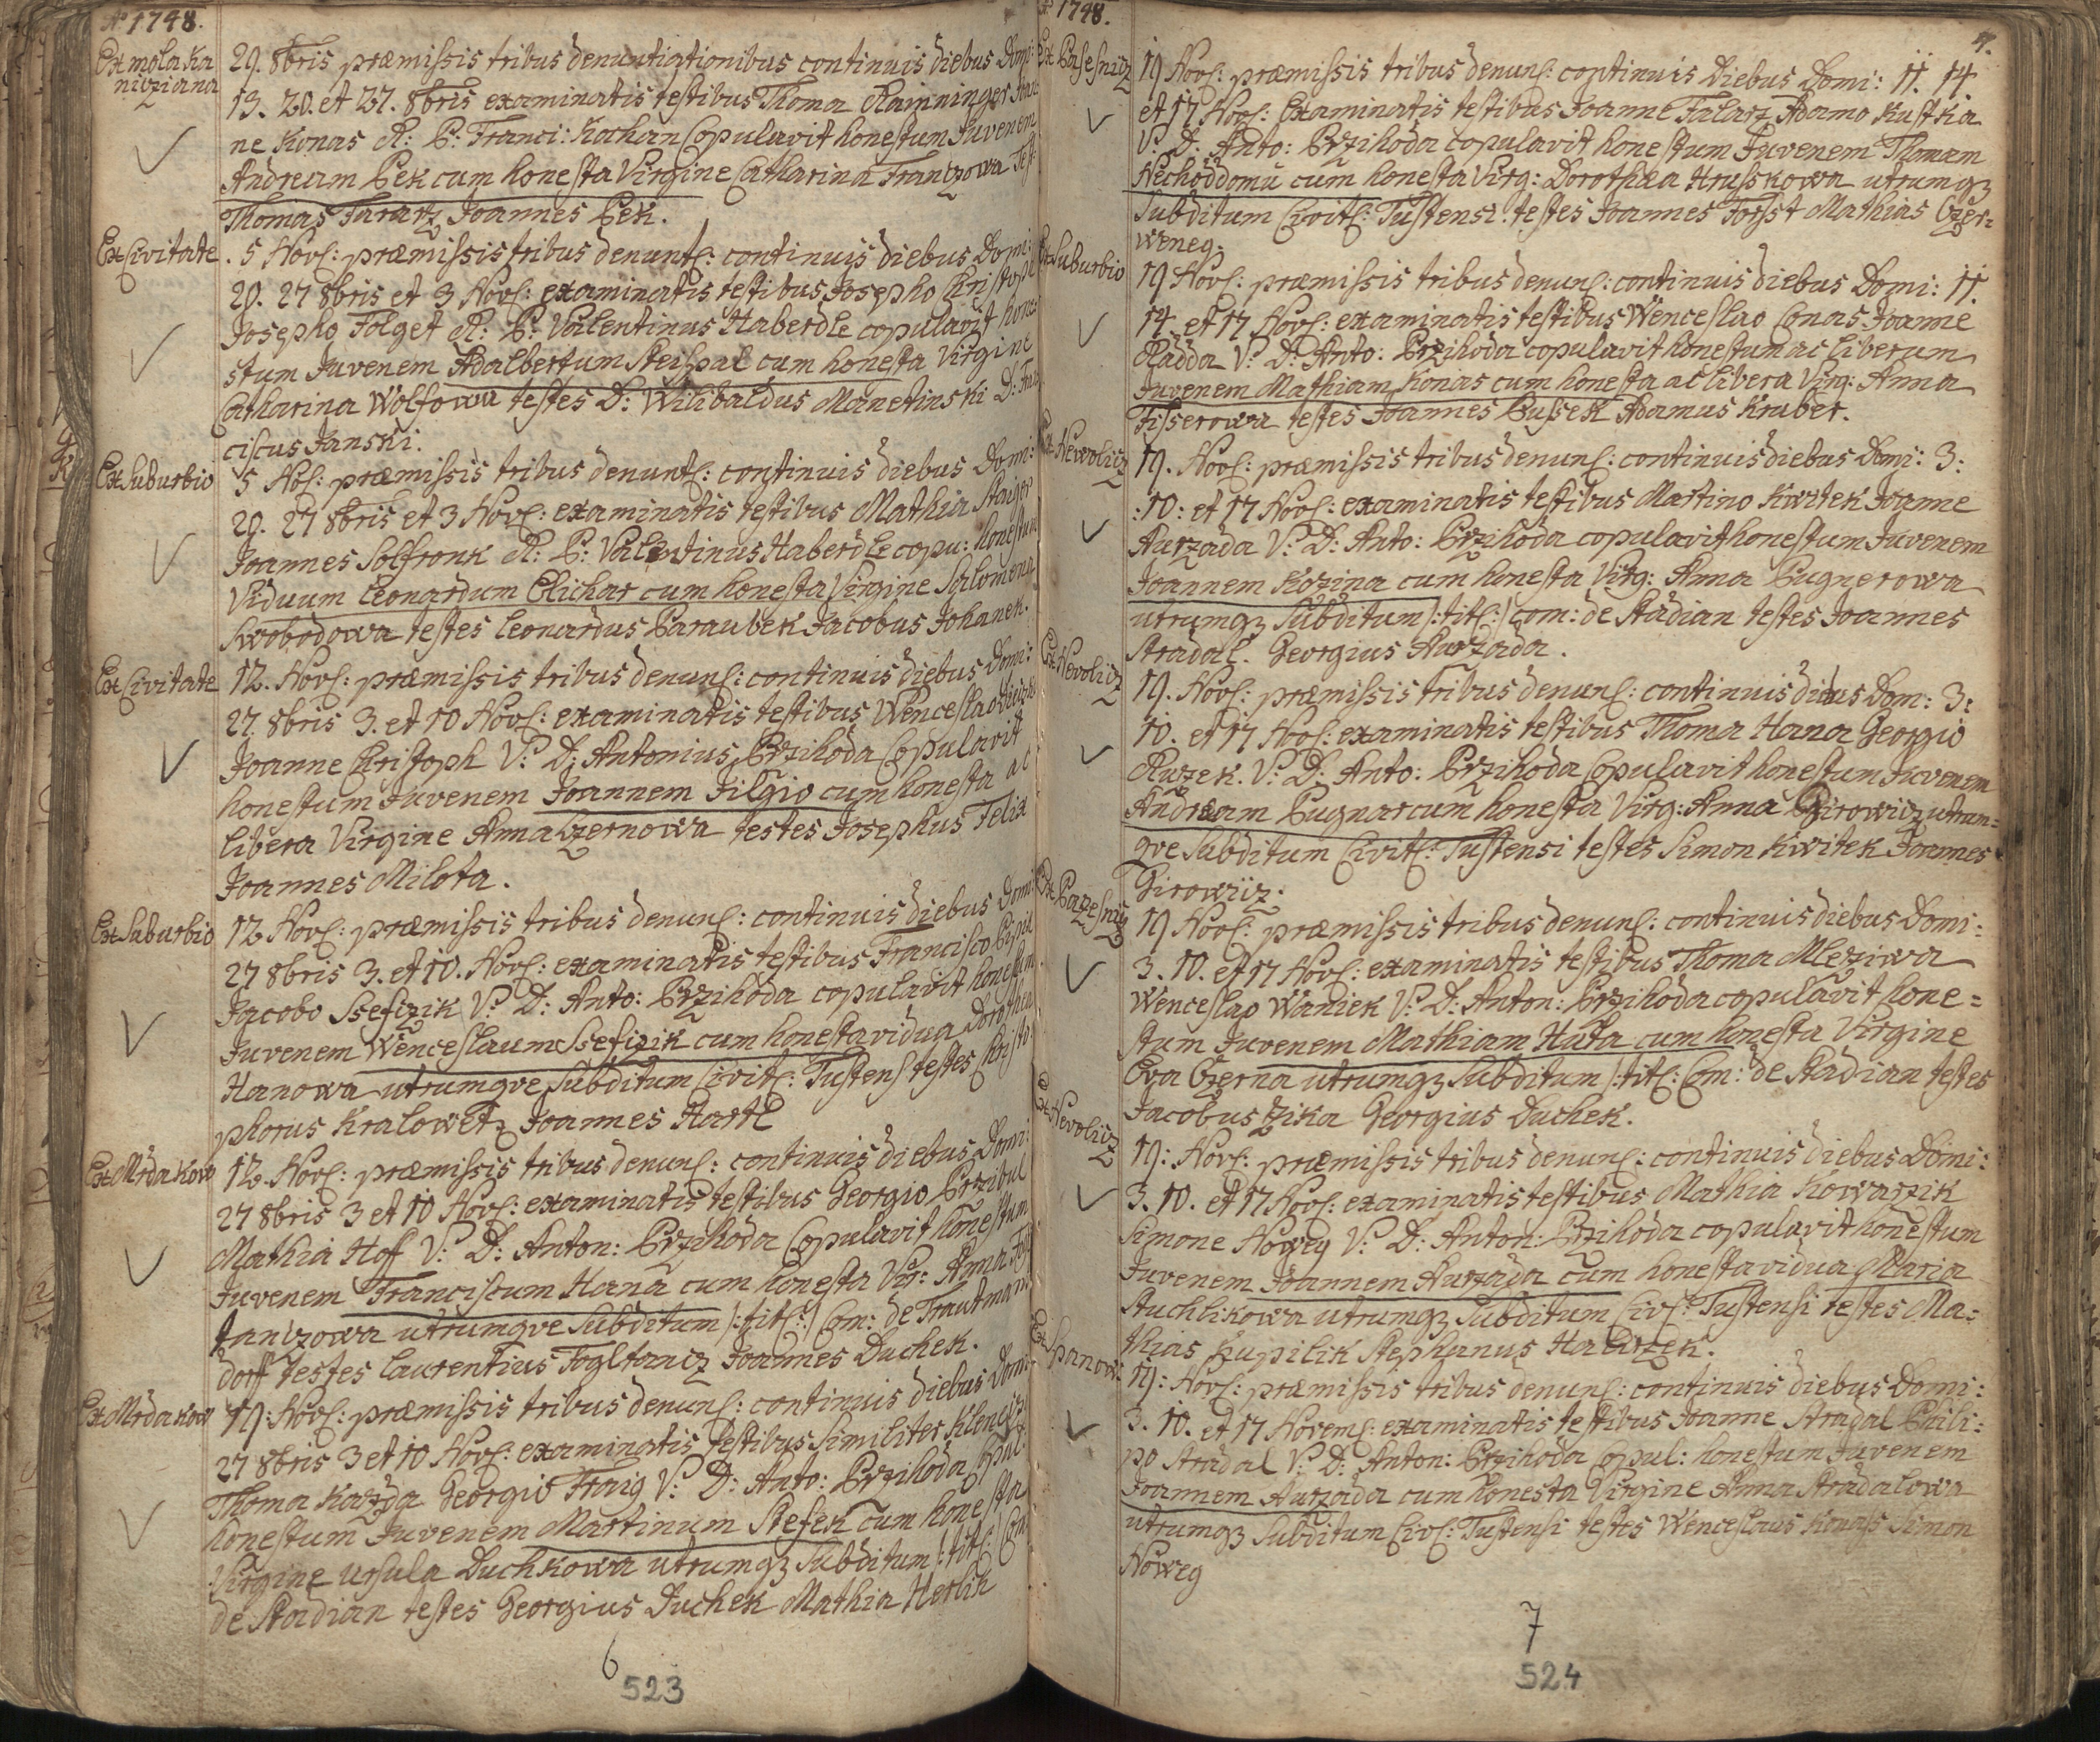 Aº 1748.
Ex mola Ka
nivziana
29. 8bris præmissis tribus denuntiationibus continuis diebus Domi:
13. 20. et 27. 8bris examinatis testibus Thoma Ramninger Joan
ne Konas R: P: Franci: Kathan Copulavit honestum Juvenem
Andream Pek cum honesta Virgine Catharina Frantzowa Test:
Thomas Fararz Joannes Pek.
Ex Civitate
5 Nov: præmissis tribus denunt: continuis diebus Domi:
20. 27 8bris et 3 Nov: examinatis testibus Josepho Christoph
Josepho Folget R: P: Valentinus Haberdle copulavit hone
stum Juvenem Adalbertum Steispal cum honesta Virgine
Catharina Wolfowa testes D: Wilibaldus Manetinski D: Fran
ciscus Janski.
Ex Suburbio
5 Nov: præmissis tribus denunt: continuis diebus Domi:
20. 27 8bris et 3 Nov: examinatis testibus Mathia Staiger
Joannes Solfronk R: P: Valentinus Haberdle copu: honestum
Viduum Leonardum Plichar cum honesta Virgine Salomena
Swobodowa testes Leonardus Paraubek Jacobus Johanek.
Ex Civitate
12. Nov: præmissis tribus denun: continuis diebus Domi:
27. 8bris 3. et 10 Nov: examinatis testibus Wenceslao
Joanne Christoph V: D: Antonius Przihoda Copulavit
honestum Juvenem Joannem Filgio cum honesta ac
libera Virgine Anna Czernowa testes Josephus Felix
Joannes Milota.
Ex Suburbio
12 Nov: præmissis tribus denun: continuis diebus Domi:
27 8bris 3. et 10. Nov: examinatis testibus Francisco
Jacobo Ssefczik V: D: Anto: Przihoda copulavit honestum
Juvenem Wenceslaum Ssefczik cum honesta vidua Dorothea
Hanowa utrumqve Subditum Civit: Tustens testes Christo
phorus Kralowetz Joannes Hartl
Ex Mrdakow
12. Nov: præmissis tribus denun: continuis diebus Domi:
27 8bris 3 et 10 Nov: examinatis testibus Georgio Przibil
Mathia Hoff V: D: Anton: Przihoda Copulavit honestum
Juvenem Franciscum Hana cum honesta Vir: Anna
Janczowa utrumqve Subditum /:tit:/ Com: de Trautmans
dorff testes Laurentius Fogltancz Joannes Duchek.
Ex Mrdakow
19: Nov: præmissis tribus denun: continuis diebus Domi:
27 8bris 3 et 10 Nov: examinatis testibus similiter Klenczi
Thoma Kaizda Georgio Fraig V: D: Anto: Przihoda Copul:
honestum Juvenem Martinum Stefek cum honesta
Virgine Ursula Duchkowa utrumqz Subditum /:tit:/ Com
de Stadian testes Georgius Duchek Mathia Herlik
6
523
Aº 1748.
7.
Ex Pasesnicz
19 Nov: præmissis tribus denun: continuis Diebus Domi: 11. 14.
et 17 Nov: Examinatis testibus Joanne Falarz Adamo Kustka
V: D: Anto: Przihoda copulavit honestum Juvenem Thomam
Nechoddomu cum honesta Virg: Dorothæa Hrusskowa utrumqz
Subditum Civit: Tustensi: testes Joannes Forst Mathias Czer:
weneg.
Ex Suburbio
19 Nov: præmissis tribus denun: continuis diebus Domi: 11.
14. et 17 Nov: examinatis testibus Wenceslao Conas Joanne
Radda V: D: Anto: Przihoda copulavit honestum ac Liberum
Juvenem Mathiam Konas cum honesta ac libera Virg: Anna
Fisserowa testes Joannes Pussek Adamus Kruber.
Ex Newolicz
19. Nov: præmissis tribus denun: continuis diebus Domi: 3:
:10: et 17 Nov: examinatis testibus Martino Kwitek Joanne
Aurzada V: D: Anto: Przihoda copulavit honestum Juvenem
Joannem Kozina cum honesta Virg: Anna Pugnerowa
utrumqz Subditum /:tit:/ Com: de Stadian testes Joannes
Stradal. Georgius Aurzada.
Ex Nevolicz
19. Nov: præmissis tribus denun: continuis diebus Dom: 3:
10. et 17 Nov: examinatis testibus Thoma Hana Georgio
Ruzek. V: D: Anto: Przihoda Copulavit honestum Juvenem
Andream Pugnar cum honesta Virg: Anna Girowicz utrum=
qve Subditum Civit: Tustensi testes Simon Kwitek Joannes
Girowicz.
Ex Pazesnicz
19 Nov: præmissis tribus denun: continuis diebus Domi:
3. 10. et 17 Nov: examinatis testibus Thoma Mleziwa
Wenceslao Waniek V: D: Anton: Przihoda copulavit hone=
stum Juvenem Mathiam Hata cum honesta Virgine
Eva Czerna utrumqz Subditum /:tit: Com: de Stadian testes
Jacobus Zika Georgius Duchek.
Ex Nevolicz
19: Nov: præmissis tribus denun: continuis diebus Domi:
3. 10. et 17 Nov: examinatis testibus Mathia Kowarzik
Simone Noweg V: D: Anton: Przihoda copulavit honestum
Juvenem Joannem Aurzada cum honesta vidua Maria
Stuchlikowa utrumqz Subditum Civ: Tustensi testes Ma=
thias Kupilik Stephanus Hawrzek.
Ex Spanow.
19: Nov: præmissis tribus denun: continuis diebus Domi:
3. 10. et 17 Novem: examinatis testibus Joanne Stradal Phili=
po Stradal V: D: Anton: Przihoda Copul: honestum Juvenem
Joannem Aurzada cum honesta Virgine Anna Stradalowa
utrumqz Subditum Civ: Tustensi testes Wenceslaus Konass Simon
Noweg
7
524